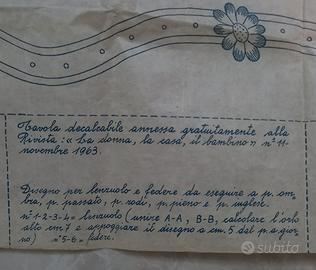 Tavola decalcabile annessa gratuitamente alla
Rivista: « La donna, la casa, il bambino » n° 11 -
novembre 1963.
Disegno per lenzuolo e federe da eseguire a p. om-
bra, p. passato, p. rodi, p. pieno e p. inglese.
n° 1-2-3-4 = lenzuolo (unire A-A, B-B, calcolare l'orlo
alto cm. 7 e appoggiare il disegno a cm. 5 dal p. a gior-
no) n° 5-6 = federe.
subito